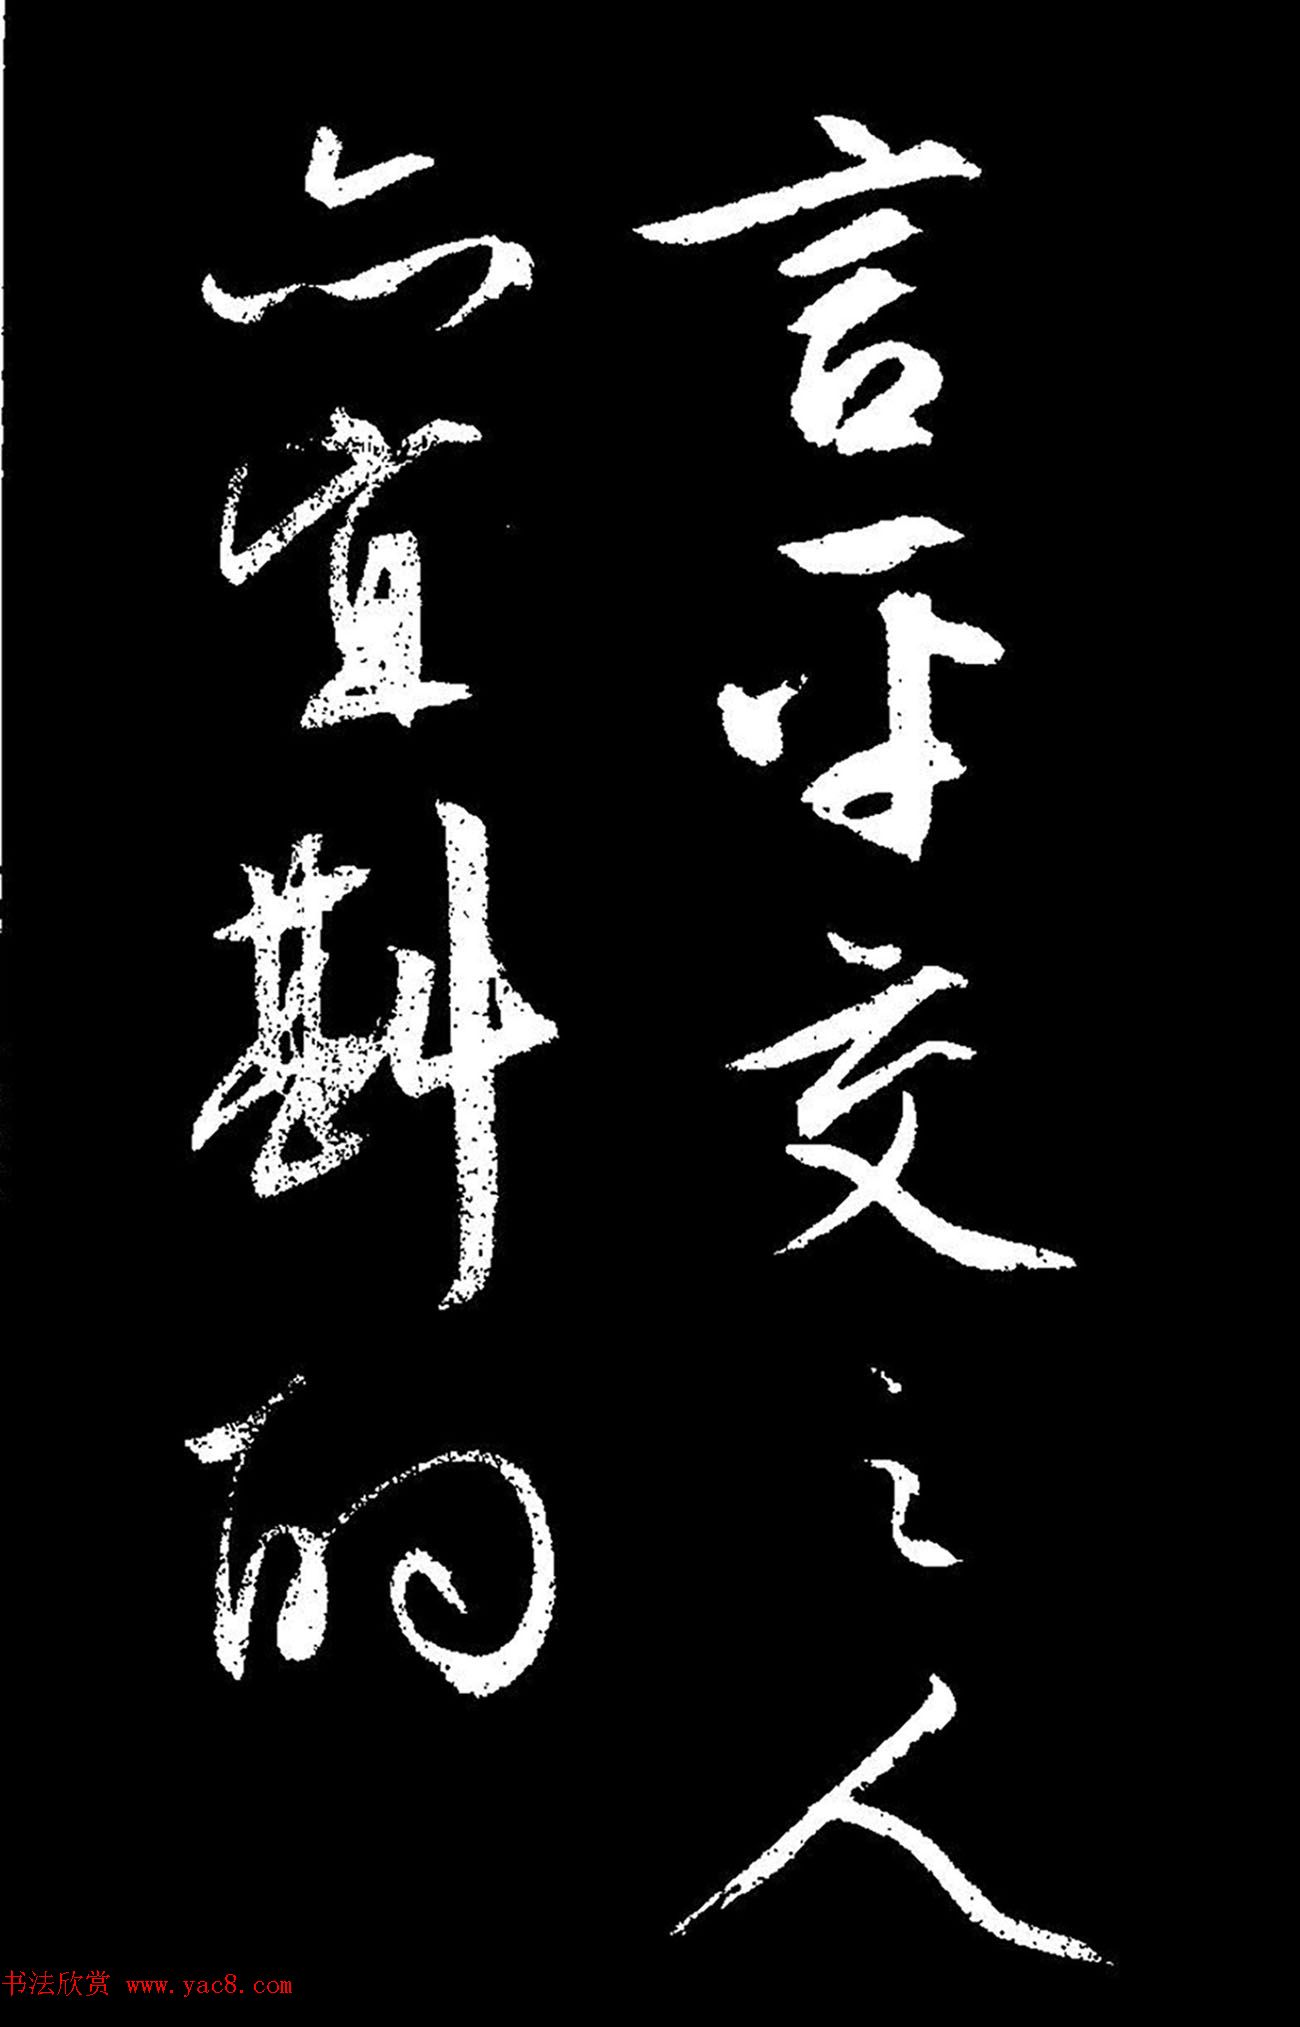 言交之人
亦宜斟酌
书法欣赏 www.yac8.com